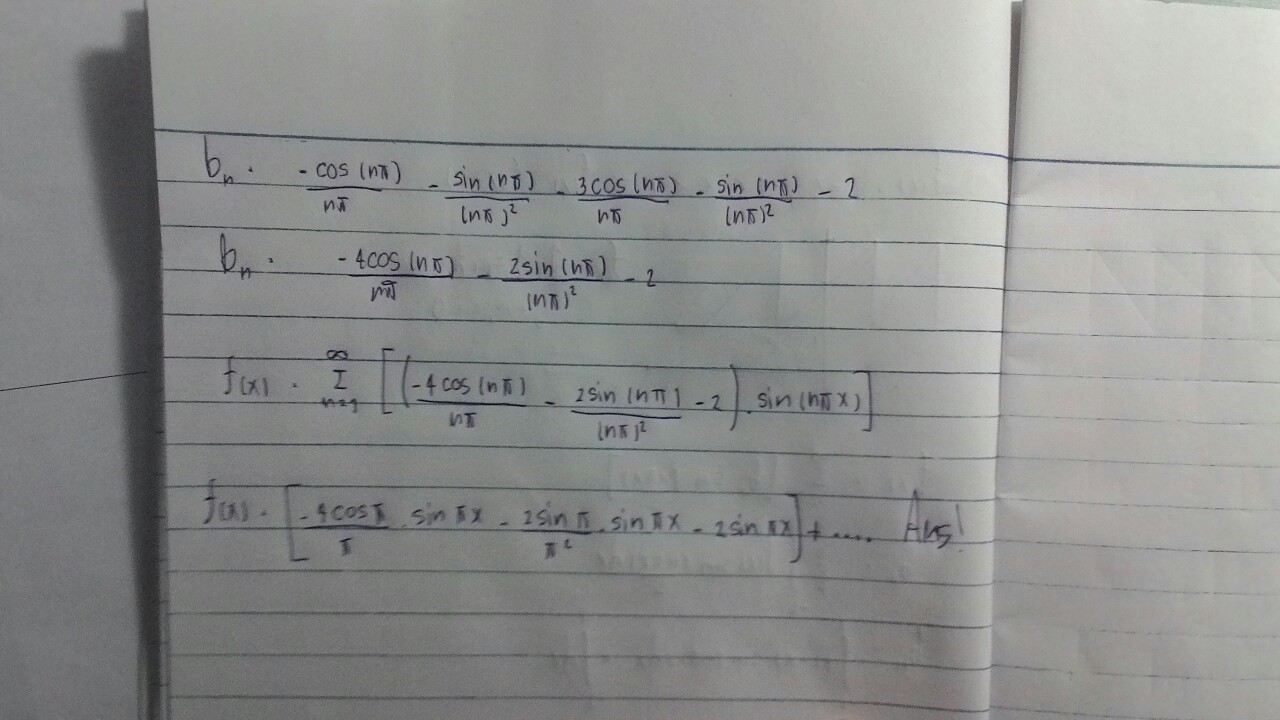 bₙ = -cos(nπ)/nπ - sin(nπ)/(nπ)² - 3cos(nπ)/nπ - sin(nπ)/(nπ)² - 2
bₙ = -4cos(nπ)/nπ - 2sin(nπ)/(nπ)² - 2
f(x) = ∞ Σ n=1 [(-4cos(nπ)/nπ - 2sin(nπ)/(nπ)² - 2) . sin(nπx)]
f(x) = [-4cosπ/π . sinπx - 2sinπ/π² . sinπx - 2sinπx] + ..... Ans!